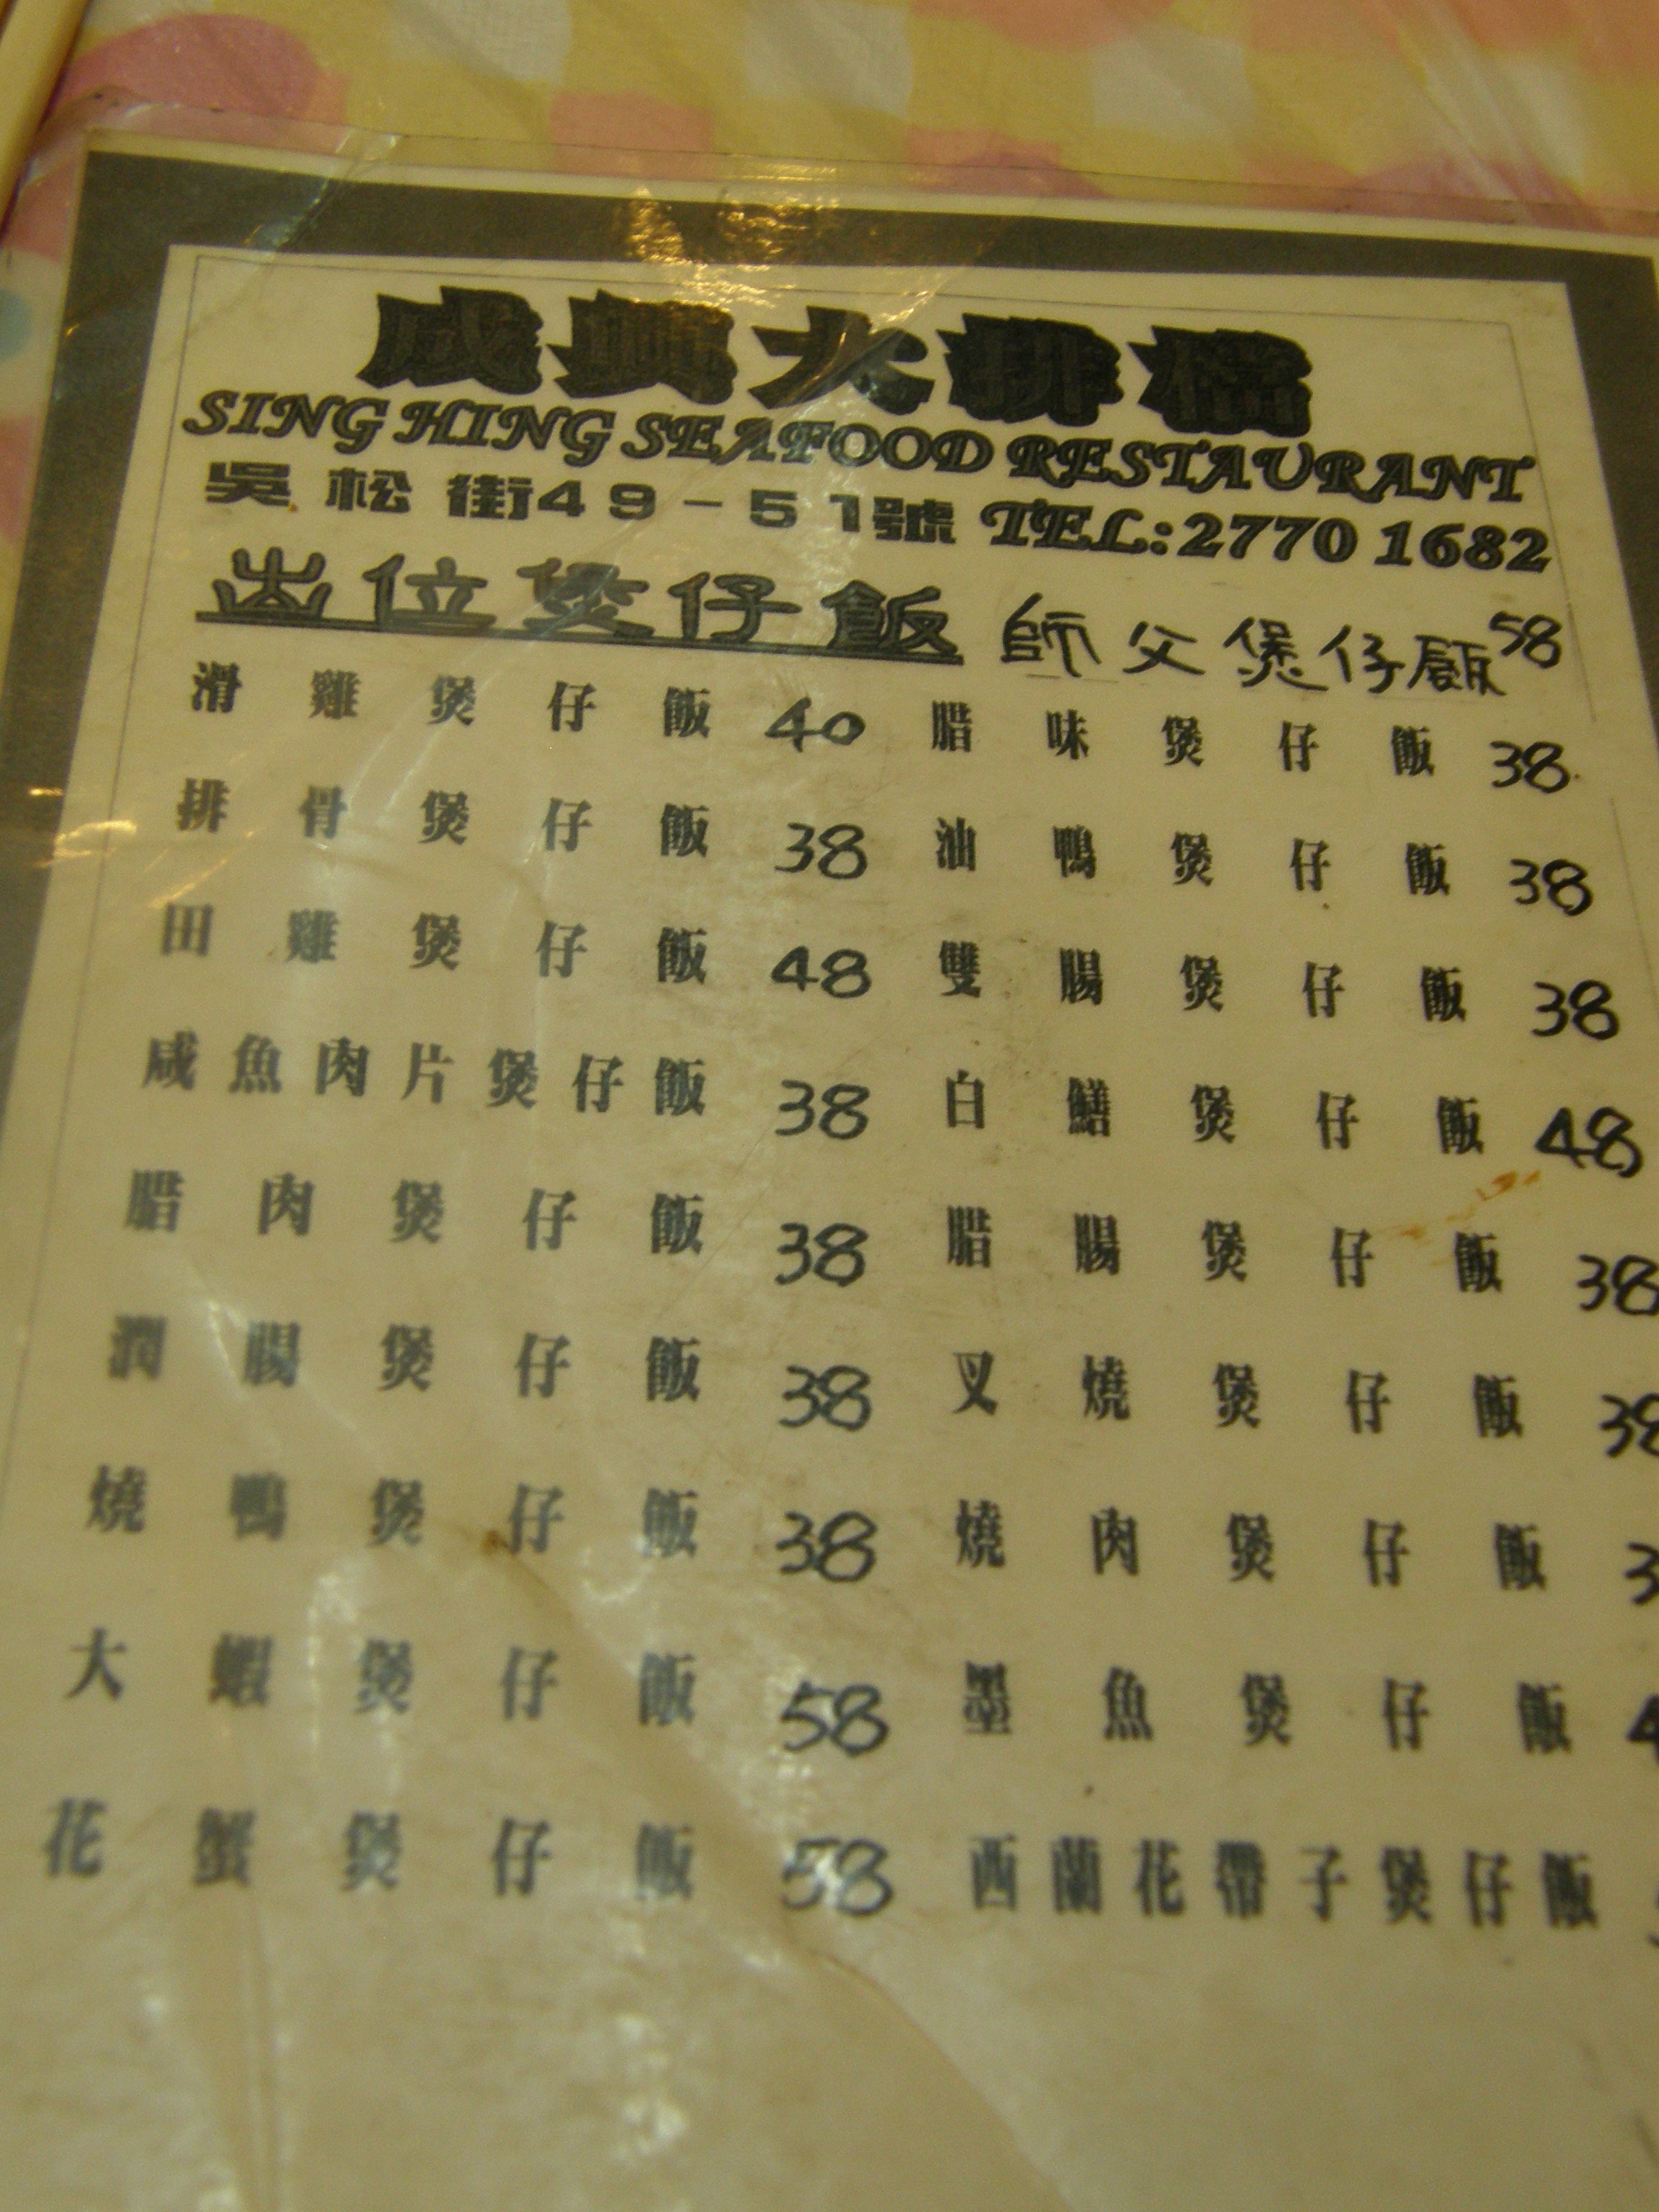 成興大排檔
SING HING SEAFOOD RESTAURANT
吳松街49-51號 TEL:2770 1682
出位煲仔飯 師父煲仔飯 58
滑雞煲仔飯 40 腊味煲仔飯 38
排骨煲仔飯 38 油鴨煲仔飯 38
田雞煲仔飯 48 雙腸煲仔飯 38
咸魚肉片煲仔飯 38 白鱔煲仔飯 48
腊肉煲仔飯 38 腊腸煲仔飯 38
潤腸煲仔飯 38 叉燒煲仔飯 38
燒鴨煲仔飯 38 燒肉煲仔飯 3
大蝦煲仔飯 58 墨魚煲仔飯 4
花蟹煲仔飯 58 西蘭花帶子煲仔飯